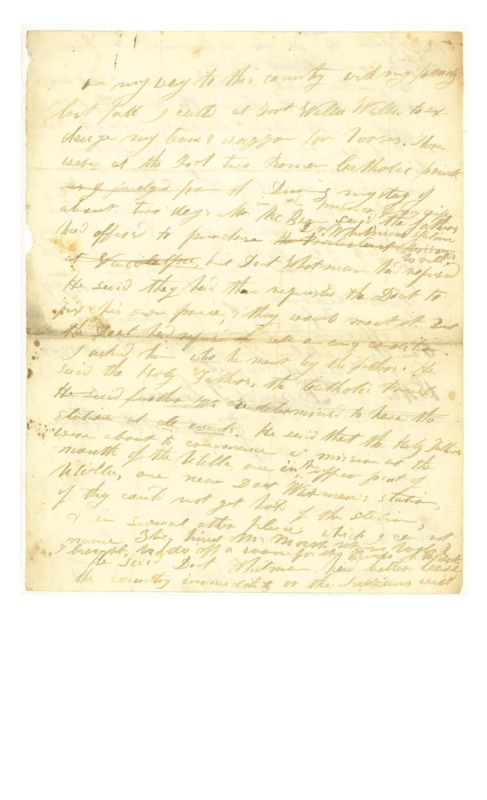 on my way to this country with my family
last fall I call'd at Fort Walla Walla to ex-
change my team & waggon for horses. There
were at the Fort two Roman Catholic priests
During my stay of
about two days Mr McBean in the presence of my wife
said the Fathers
had offered to purchase Dr Whitman's station
at but Doct Whitman had refused
to sell
He said they had then requested the Doct to
fix his own price, & they would meet it. But
the Doct had refused to sell on any conditions.
I asked him who he ment by the fathers. He
said the Holy Fathers, the Catholic Priests.
He said further we are determined to have the
station at all events. He said that the Holy Fathers
were about to commence a mission at the
mouth of the Walla one in the upper part of
one near Doct Whitman's station,
if they could not get hold of the station,
& in several other places which I can not
name. They hired Mr Marsh
& do off a room for
He said Doct Whitman had better leave
the country immediately or the Indians will